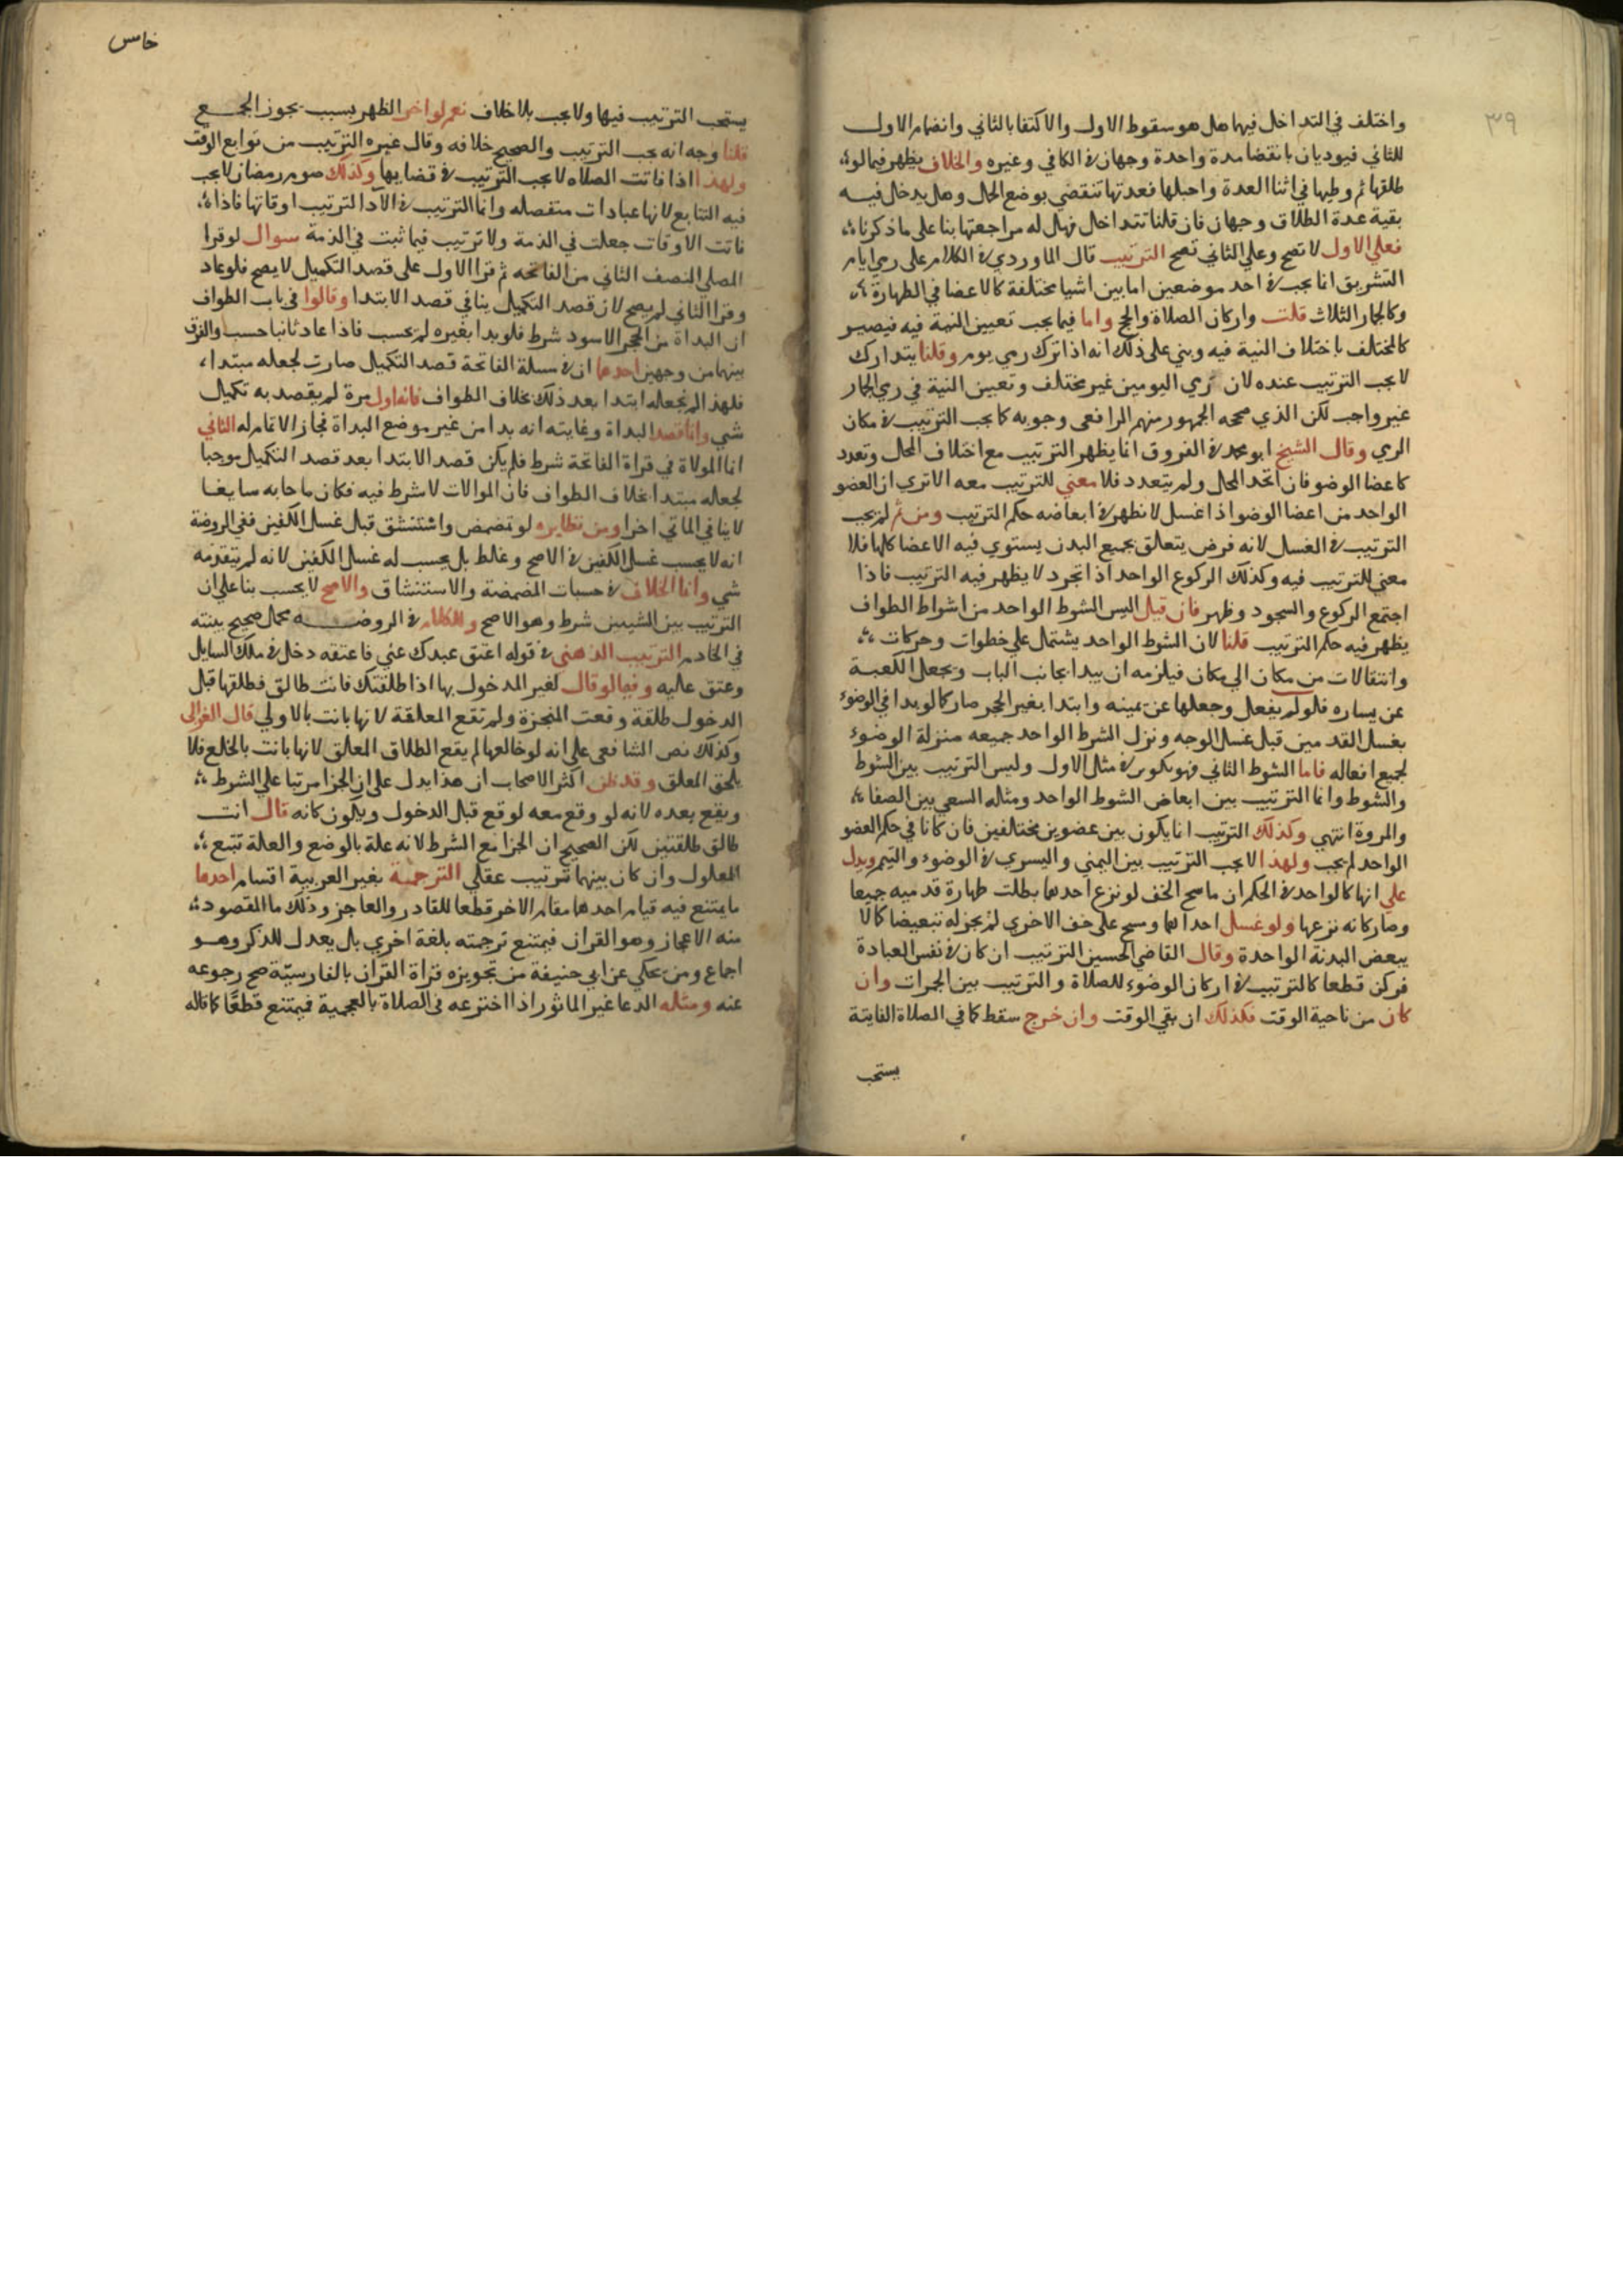 ٣٩
واختلف في التداخل فيها هل هو سقوط الاول والاكتفا بالثاني وانضمام الاول
للثاني فيوديان بانقضا مدة واحدة وجهان في الكافي وغيره والخلاف يظهر فيما لو
طلقها ثم وطيها في اثنا العدة واحبلها فعدتها تنقضي بوضع الحمل وهل يدخل فيه
بقية عدة الطلاق وجهان فان قلنا تتداخل فهل له مراجعتها بنا على ما ذكرناه
فعلي الاول لا تصح وعلي الثاني تصح الترتيب قال الماوردي في الكلام على رمي ايام
التشريق انما يجب في احد موضعين اما بين اشيا مختلفة كالاعضا في الطهارة
وكالجمار الثلاث قلت واركان الصلاة والحج واما فيما يجب تعيين النية فيه فيصير
كالمختلف باختلاف النية فيه وبني على ذلك انه اذا ترك رمي يوم وقلنا يتدارك
لا يجب الترتيب عنده لان رمي اليومين غير مختلف وتعيين النية في رمي الجمار
غير واجب لكن الذي صححه الجمهور منهم الرافعي وجوبه كما يجب الترتيب في مكان
الرمي وقال الشيخ ابو محمد في الفروق انما يظهر الترتيب مع اختلاف المحل وتعدد
كاعضا الوضو فان اتحد المحل ولم يتعدد فلا معني للترتيب معه الا تري ان العضو
الواحد من اعضا الوضو اذا غسل لا نظهر في ابعاضه حكم الترتيب ومن ثم لم يجب
الترتيب في الغسل لانه فرض يتعلق بجميع البدن يستوي فيه الاعضا كلها فلا
معني للترتيب فيه وكذلك الركوع الواحد اذا تجرد لا يظهر فيه الترتيب فاذا
اجتمع الركوع والسجود وظهر فان قيل اليس الشوط الواحد من اشواط الطواف
يظهر فيه حكم الترتيب قلنا لان الشوط الواحد يشتمل علي خطوات وحركات
وانتقالات من مكان الي مكان فيلزمه ان يبدا بجانب الباب ويجعل الكعبة
عن يساره فلو لم يفعل وجعلها عن يمينه وابتدا بغير الحجر صار كما لو بدا في الوضوء
بغسل القدمين قبل غسل الوجه ونزل الشرط الواحد جميعه منزلة الوضوء
لجميع افعاله فاما الشوط الثاني فهو تكوير في مثل الاول وليس الترتيب بين الشوط
والشوط وانما الترتيب بين ابعاض الشوط الواحد ومثله السعي بين الصفا
والمروة انتهي وكذلك الترتيب انما يكون بين عضوين مختلفين فان كانا في حكم العضو
الواحد لم يجب ولهذا لا يجب الترتيب بين اليمني واليسري في الوضوء والتيمم ويدل
علي انها كالواحد في الحكم ان ماسح الخف لو نزع احدهما بطلت طهارة قدميه جميعا
وصار كانه نزعها ولو غسل احداهما ومسح على خف الاخري لم يجز له تبعيضا كما لا
يبعض البدنة الواحدة وقال القاضي الحسين الترتيب ان كان في نفس العبادة
فركن قطعا كالترتيب في اركان الوضوء للصلاة والترتيب بين الجمرات وان
كان من ناحية الوقت فكذلك ان بقي الوقت وان خرج سقط كما في الصلاة الفايتة
يستحب
خامس
يستحب الترتيب فيها ولا يجب بلا خلاف نعم لو اخر الظهر بسبب يجوز الجمع
قلنا وجه انه يجب الترتيب والصحيح خلافه وقال غيره الترتيب من توابع الوقت
ولهذا اذا فاتت الصلاه لا يجب الترتيب في قضايها وكذلك صوم رمضان لا يجب
فيه التتابع لانها عبادات منفصله وانما الترتيب في الادا لترتيب اوقاتها فاذا
فاتت الاوقات جعلت في الذمة ولا ترتيب فيما ثبت في الذمة سوال لو قرا
المصلي النصف الثاني من الفاتحه ثم قرا الاول على قصد التكميل لا يصح فلو عاد
وقرا الثاني لم يصح لان قصد التكميل ينافي قصد الابتدا وقالوا في باب الطواف
ان البداة من الحجر الاسود شرط فلو بدا بغيره لم يحسب فاذا عاد ثانيا حسب والفرق
بينهما من وجهين احدهما ان في مسلة الفاتحة قصد التكميل صارت لجعله مبتدا
فلهذا لم نجعله ابتدا بعد ذلك بخلاف الطواف فانه اول مرة لم يقصد به تكميل
شي وانما قصد البداة وغايته انه بدا من غير موضع البداة فجاز الاتمام له الثاني
انما الموالاة في قراة الفاتحة شرط فلم يكن قصد الابتدا بعد قصد التكميل موجبا
لجعله مبتدا بخلاف الطواف فان الموالات لا شرط فيه فكان ما جا به سايغا
لا ينافي الماتي اخرا ومن نظايره لو تمضمض واستنشق قبل غسل الكفين ففي الروضة
انه لا يحسب غسل الكفين في الاصح وغلط بل يحسب له غسل الكفين لانه لم يتقدمه
شي وانما الخلاف في حسبات المضمضة والاستنشاق والاصح لا يحسب بنا على ان
الترتيب بين الشيين شرط وهو الاصح وللكلام في الروضه محمل صحيح بينته
في الخادم الترتيب الذهني في قوله اعتق عبدك عني فاعتقه دخل في ملك السايل
وعتق عليه وفيما لو قال لغير المدخول بها اذا طلقتك فانت طالق فطلقها قبل
الدخول طلقة وقعت المنجزة ولم تقع المعلقة لانها بانت بالاولي قال الغزالى
وكذلك نص الشافعي على انه لو خالعها لم يقع الطلاق المعلق لانها بانت بالخلع فلا
يلحق المعلق وقد ظن اكثر الاصحاب ان هذا يدل على ان الجزا مرتبا علي الشرط
ويقع بعده لانه لو وقع معه لوقع قبل الدخول ويكون كانه قال انت
طالق طلقتين لكن الصحيح ان الجزا مع الشرط لانه علة بالوضع والعلة تتبع
المعلول وان كان بينهما ترتيب عقلي الترجمة بغير العربية اقسام احدها
ما يمتنع فيه قيام احدهما مقام الاخر قطعا للقادر والعاجز وذلك ما المقصود
منه الاعجاز وهو القران فيمتنع ترجمته بلغة اخري بل يعدل للذكر وهو
اجماع ومن يحكي عن ابي حنيفة من تجويزه قراة القران بالفارسية صح رجوعه
عنه ومثله الدعا غير الماثور اذا اخترعه في الصلاة بالعجمية فيمتنع قطعا كما قاله